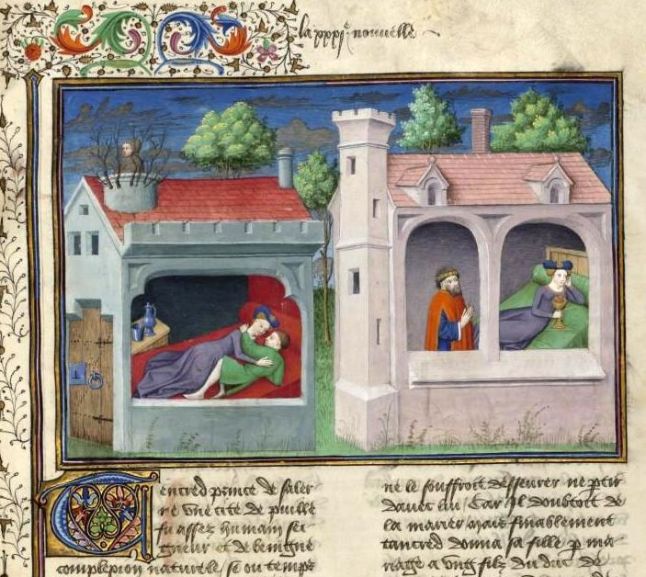 la xxxi.e nouuelle
Tencred prince de saler
ne vne cite de puille
fu assez humain sei
gneur et de benigne
complexion naturele se ou temps
ne le souffroit desseurer ne ptir
dauec lui Car il doubtoit de
la marier mais finablement
tancred donna sa fille p ma
riage a vng filz du duc de